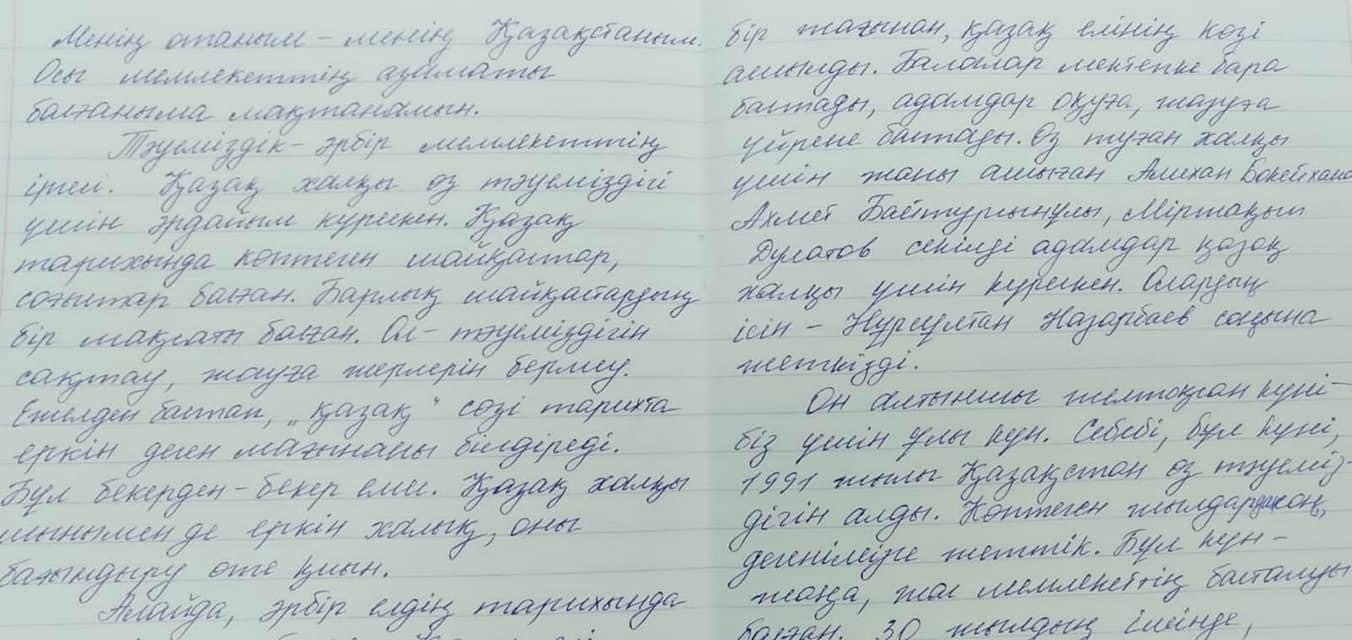 Менің отаным – менің Қазақстаным.
Осы мемлекеттің азаматы
болғаныма мақтанамын.
Тәуелсіздік – әрбір мемлекеттің
іргесі. Қазақ халқы өз тәуелсіздігі
үшін әрдайым күрескен. Қазақ
тарихында көптеген шайқастар,
соғыстар болған. Барлық шайқастардың
бір мақсаты болған. Ол – тәуелсіздігін
сақтау, жауға жерлерін бермеу.
Ежелден бастап, „қазақ“ сөзі тарихта
еркін деген мағынаны білдіреді.
Бұл бекерден-бекер емес. Қазақ халқы
шынымен де еркін халық, оны
бағындыру өте қиын.
Алайда, әрбір елдің тарихында
бір жағынан, қазақ елінің көзі
ашылды. Балалар мектепке бара
бастады, адамдар оқуға, жазуға
үйрене бастады. Өз туған халқы
үшін жаны ашыған Алихан Бокейхано
Ахмет Байтурсынұлы, Міржақып
Дулатов секілді адамдар қазақ
халқы үшін күрескен. Олардың
ісін – Нурсултан Назарбаев соңына
жеткізді.
Он алтыншы желтоқсан күні –
біз үшін ұлы күн. Себебі, бұл күні,
1991 жылы Қазақстан өз тәуелсіз-
дігін алды. Көптеген жылдардан соң,
дегенімізге жеттік. Бұл күн –
жаңа, жас мемлекеттің басталуы
болған. 30 жылдың ішінде,